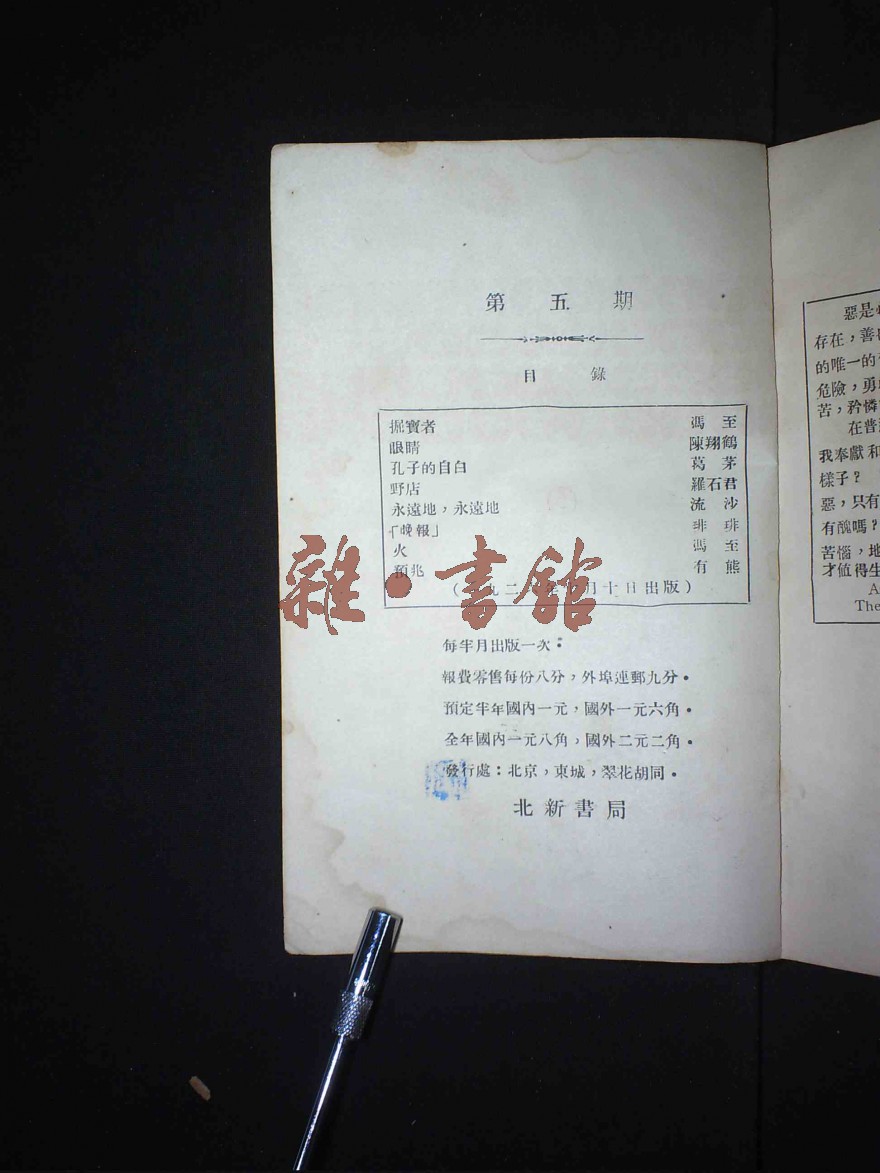 第五期
目錄
掘寶者 馮至
眼睛 陳翔鶴
孔子的自白 葛茅
野店 羅石君
永遠地，永遠地 流沙
「晚報」 琲琲
火 馮至
預兆 有熊
九二 月十日出版）
每半月出版一次：
報費零售每份八分，外埠連郵九分。
預定半年國內一元，國外一元六角。
全年國內一元八角，國外二元二角。
發行處：北京，東城，翠花胡同。
北新書局
雜·書館
惡是
存在，善
的唯一的
危險，勇
苦，矜憐
在普
我奉獻和
樣子？
惡，只有
有醜嗎？
苦惱，地
才値得生
A
The